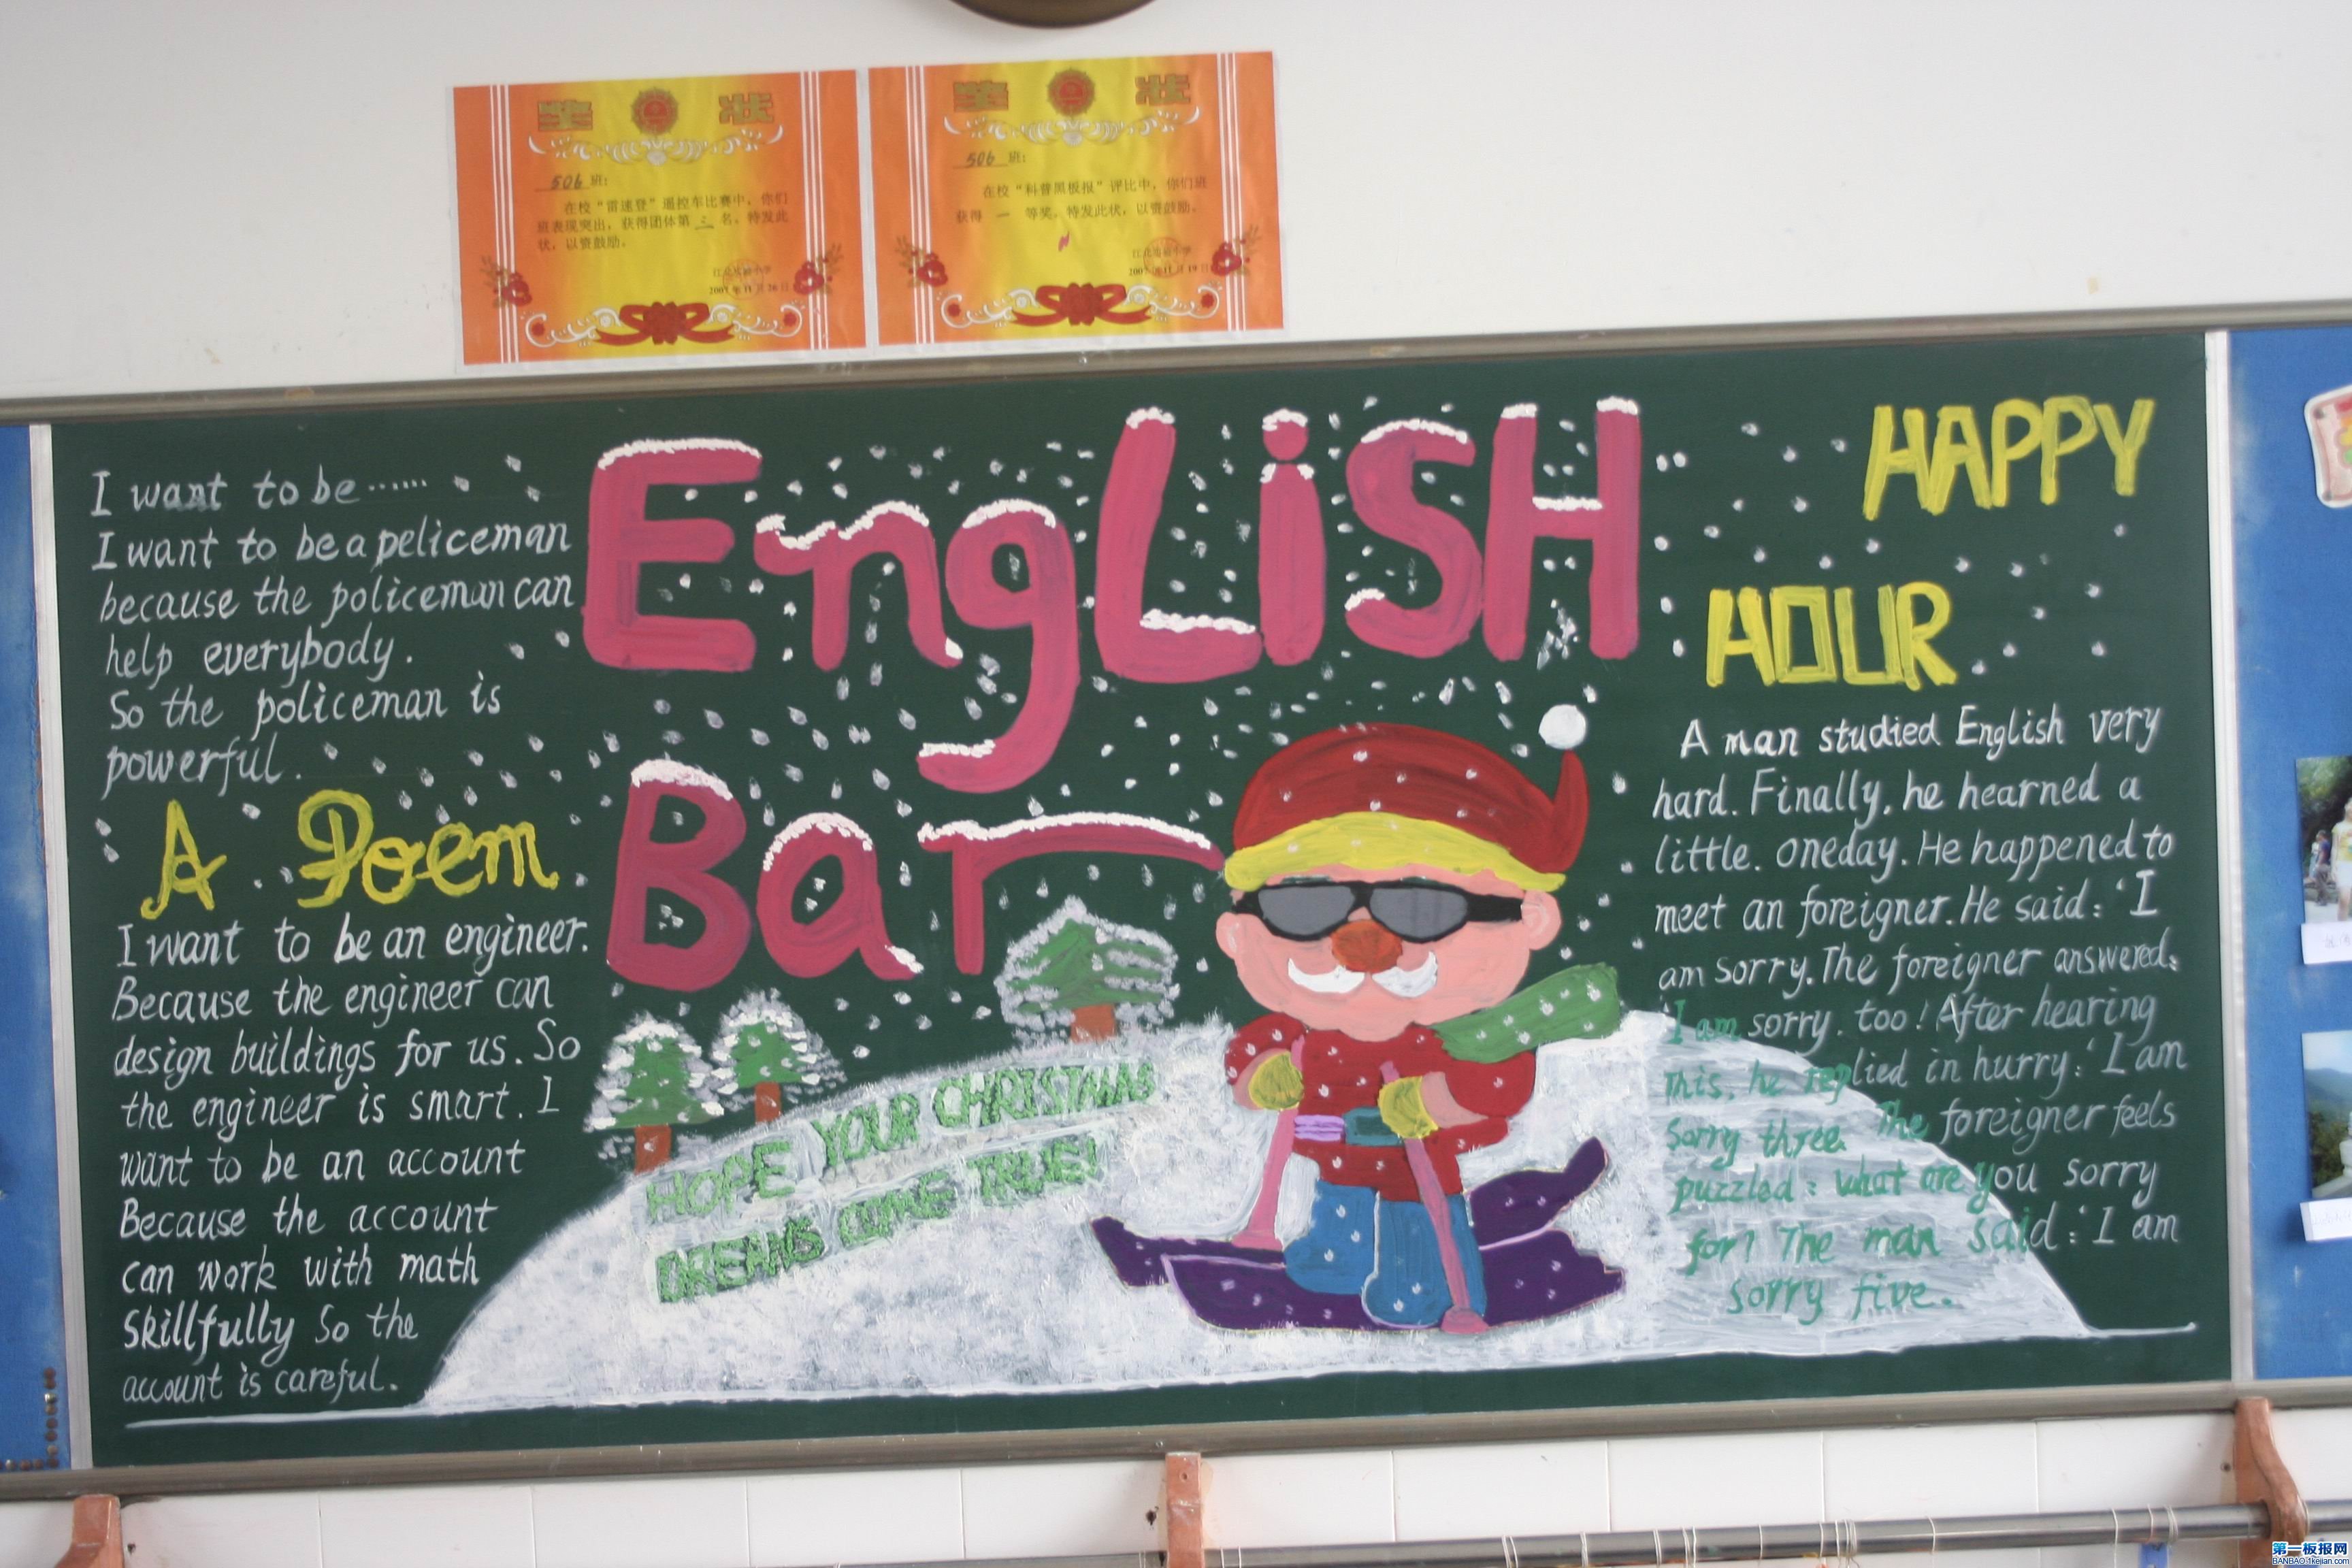 奖 状
506 班:
在校“雷速登”遥控车比赛中，你们
班表现突出，获得团体第 三 名。特发此
状，以资鼓励。
2007年11月26日
奖 状
506 班:
在校“科普黑板报”评比中，你们班
获得 一 等奖。特发此状，以资鼓励。
2007年11月19日
EngLiSH
Bar
I want to be……
I want to be a peliceman
because the policeman can
help everybody.
So the policeman is
powerful.
A Poem
I want to be an engineer.
Because the engineer can
design buildings for us. So
the engineer is smart. I
want to be an account
Because the account
can work with math
skillfully So the
account is careful.
HOPE YOUR CHRISTMAS
DREAMS COME TRUE!
HAPPY
HOUR
A man studied English very
hard. Finally, he hearned a
little. oneday. He happened to
meet an foreigner. He said: ‘I
am sorry. The foreigner answered:
‘I am sorry. too! After hearing
This, he replied in hurry: ‘I am
Sorry three. The foreigner feels
puzzled: what are you sorry
for? The man said: ‘I am
sorry five.
第一板报网
BANBAO.1kejian.com